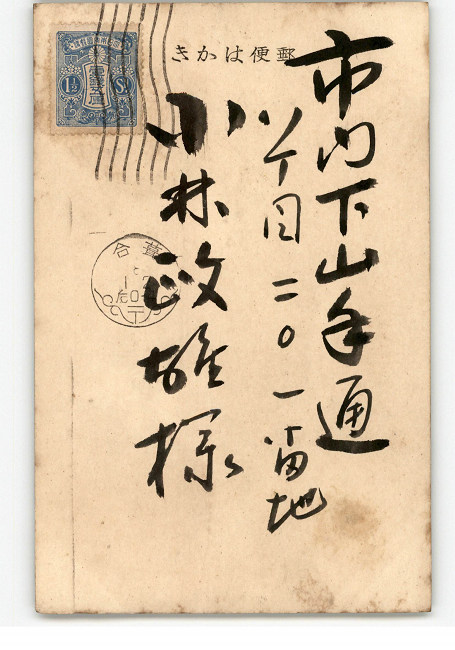 郵便はかき
市内下山手通
八丁目二〇一番地
小林政雄様
1½ Sn
葺合